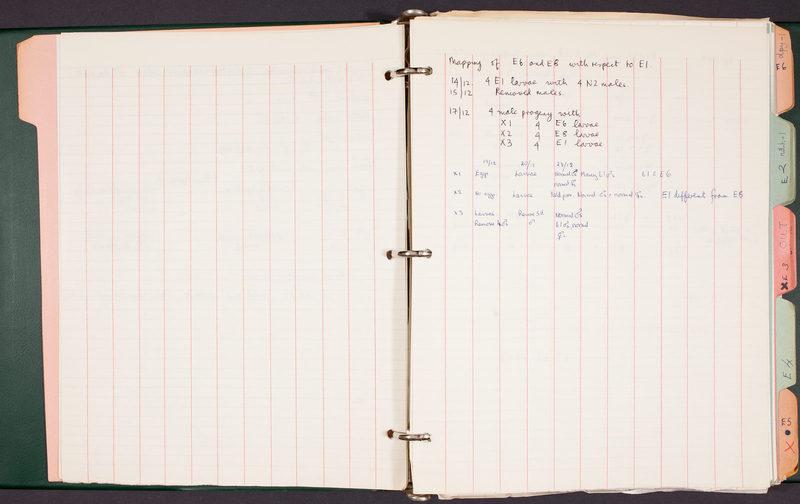 Mapping of E6 and E8 with respect to E1.
14/12. 4 E1 larvae with 4 N2 males.
15/12 Removed males.
17/12 4 male progeny with
X1 4 E6 larvae
X2 4 E8 larvae
X3 4 E1 larvae
19/12 20/12 23/12
X1 Eggs Larvae Normal ♂ Many L1 ♂s E6
normal ♀s
X2 No eggs Larvae Normal ♂s + normal ♀s. E1 different from E8
X3 Larvae Normal ♂
Remove ♂s ♂ normal
♀s
E6 dpy-1
E2 rddh-1
E3 OUT
E4
E5
X